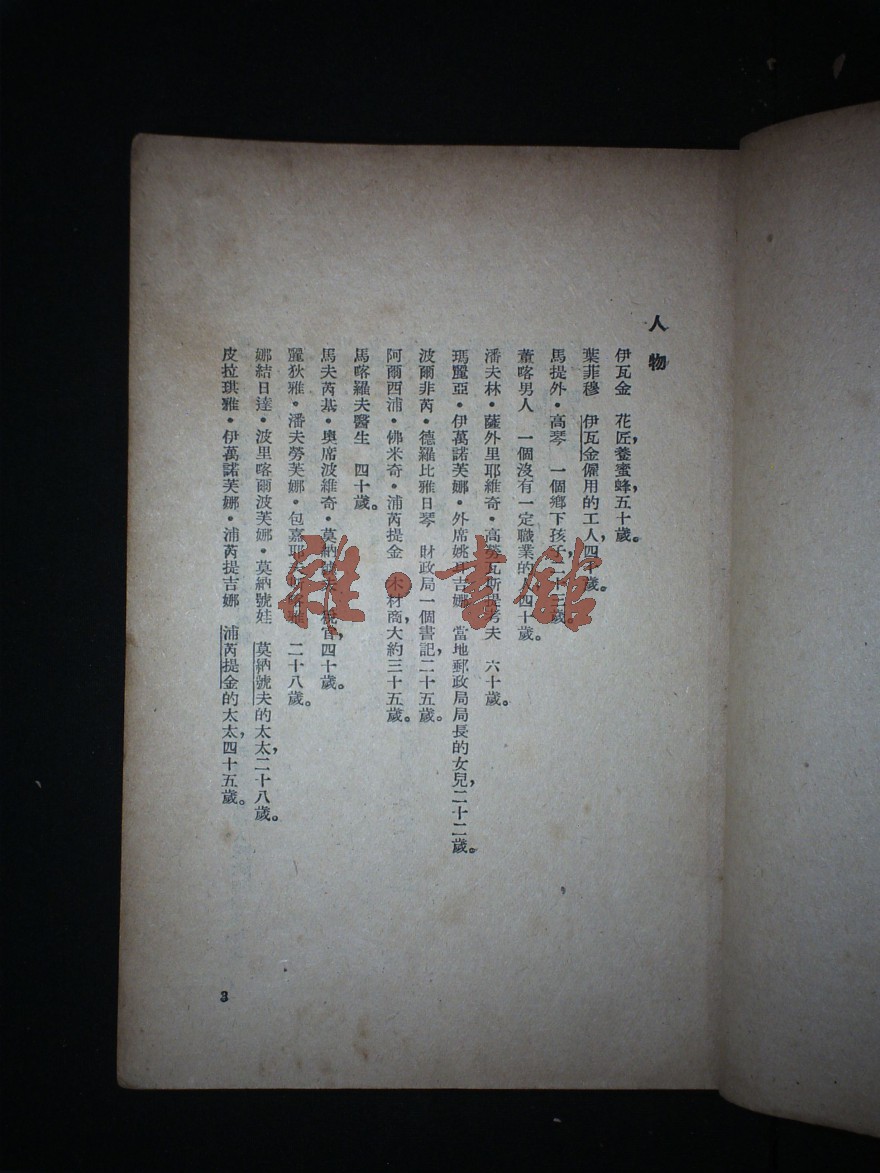 人物
伊瓦金 花匠,養蜜蜂,五十歲。
葉菲穆 伊瓦金僱用的工人,四十歲。
馬提外·高琴 一個鄉下孩子,二十三歲。
董喀男人 一個沒有一定職業的人,四十歲。
潘夫林·薩外里耶維奇·高勞瓦斯提考夫 六十歲。
瑪麗亞·伊萬諾芙娜·外席姚吉娜 當地郵政局局長的女兒,二十二歲。
波爾非芮·德羅比雅日琴 財政局一個書記,二十五歲。
阿爾西浦·佛米奇·浦芮提金 木材商,大約三十五歲。
馬喀羅夫醫生 四十歲。
馬夫芮基·奧席波維奇·莫納號夫 稅官,四十歲。
麗狄雅·潘夫勞芙娜·包嘉耶夫斯喀雅 二十八歲。
娜結日達·波里喀爾波芙娜·莫納號娃 莫納號夫的太太,二十八歲。
皮拉琪雅·伊萬諾芙娜·浦芮提吉娜 浦芮提金的太太,四十五歲。
3
雜·書館